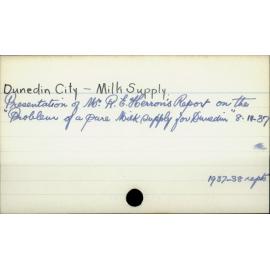 Dunedin City - Milk Supply
Presentation of Mr. R. E. Herron's Report on the
"Problem of a pure Milk Supply for Dunedin" 8-12-37
1937-38 repts